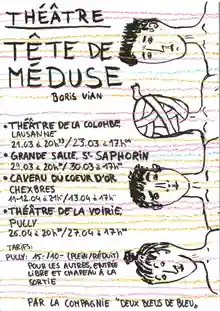 THÉÂTRE
TÊTE DE
MÉDUSE
BORIS VIAN
• THÉÂTRE DE LA COLOMBE,
LAUSANNE
21.03 à 20H30/23.03 à 17H00
• GRANDE SALLE, ST-SAPHORIN
29.03 à 20H30/30.03 à 17H00
• CAVEAU DU COEUR D'OR
CHEXBRES
11-12.04 à 21H/13.04 à 17H
• THÉÂTRE DE LA VOIRIE,
PULLY
26.04 à 20H30/27.04 à 17H00
TARIFS:
PULLY: 15.-/10.- (PLEIN/RÉDUIT)
POUR LES AUTRES, ENTRÉE
LIBRE ET CHAPEAU À LA
SORTIE
PAR LA COMPAGNIE "DEUX BLEUS DE BLEU"